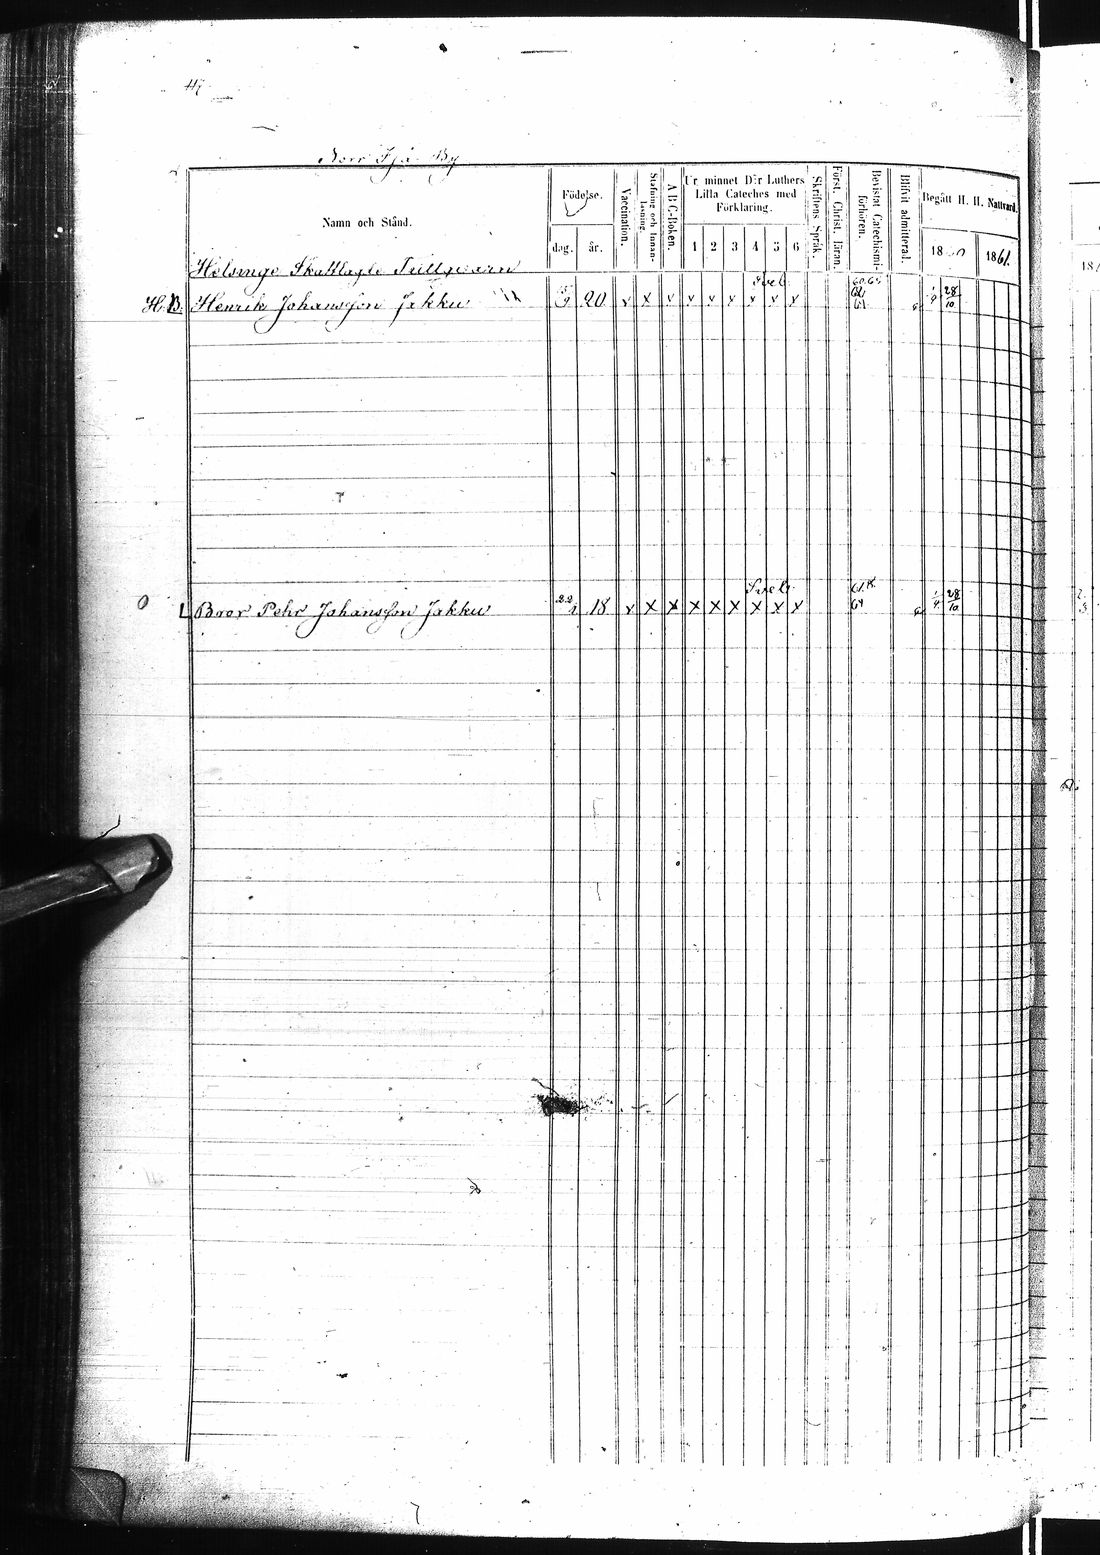 47
Norr Sjö By
Namn och Stånd.
Födelse.
dag. år.
Vaccination.
Stafning och Innan-läsning.
A B C-Boken.
Ur minnet D:r Luthers
Lilla Cateches med
Förklaring.
1 2 3 4 5 6
Skriftens Språk.
Först. Christ. läran.
Bevistat Catechismi-förhören.
Blifvit admitterad.
Begått H. H. Nattvard.
1860 1861.
Helsinge Skattlagde Tullqvarn
H.B. Henrik Johansson Jakku 20 v x v v v v v x x x 28/10
L Bror Pehr Johansson Jakku 22 18 v x x x x x x x x 61 28/10